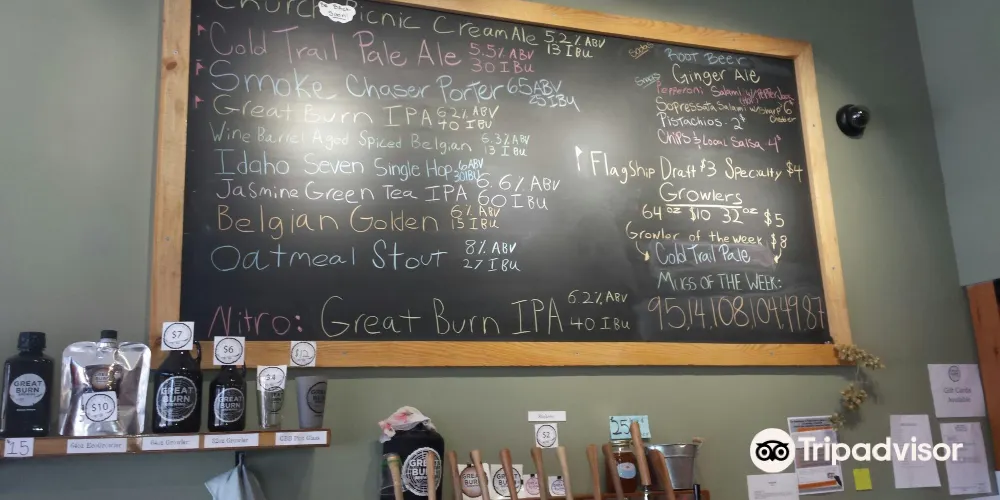 Church Picnic Cream Ale 5.2% ABV 13 IBU
Cold Trail Pale Ale 5.5% ABV 30 IBU
Smoke Chaser Porter 6.5 ABV 25 IBU
Great Burn IPA 6.2% ABV 40 IBU
Wine Barrel Aged Spiced Belgian 6.3% ABV 13 IBU
Idaho Seven Single Hop 6 ABV 30 IBU
Jasmine Green Tea IPA 6.6% ABV 60 IBU
Belgian Golden 6% ABV 15 IBU
Oatmeal Stout 8% ABV 27 IBU
Nitro: Great Burn IPA 6.2% ABV 40 IBU
Sodas
Root Beer
Ginger Ale
Snacks
Pepperoni Salami w/
Sopressata Salami w/ Sharp 6$
Pistachios - 2$
Chips & Local Salsa 4$
Flagship Draft $3 Specialty $4
Growlers
64 oz $10 32 oz $5
Growler of the week $8
Cold Trail Pale
MUGS OF THE WEEK:
95,14,108,104,49,87
$7
$6
$12
$4
$10
15
GREAT BURN
GREAT BURN
GREAT BURN
GREAT BURN
64oz Growler
32oz Growler
GBB Pint Glass
$2
25¢
GREAT BURN
Gift Cards
Available
Tripadvisor